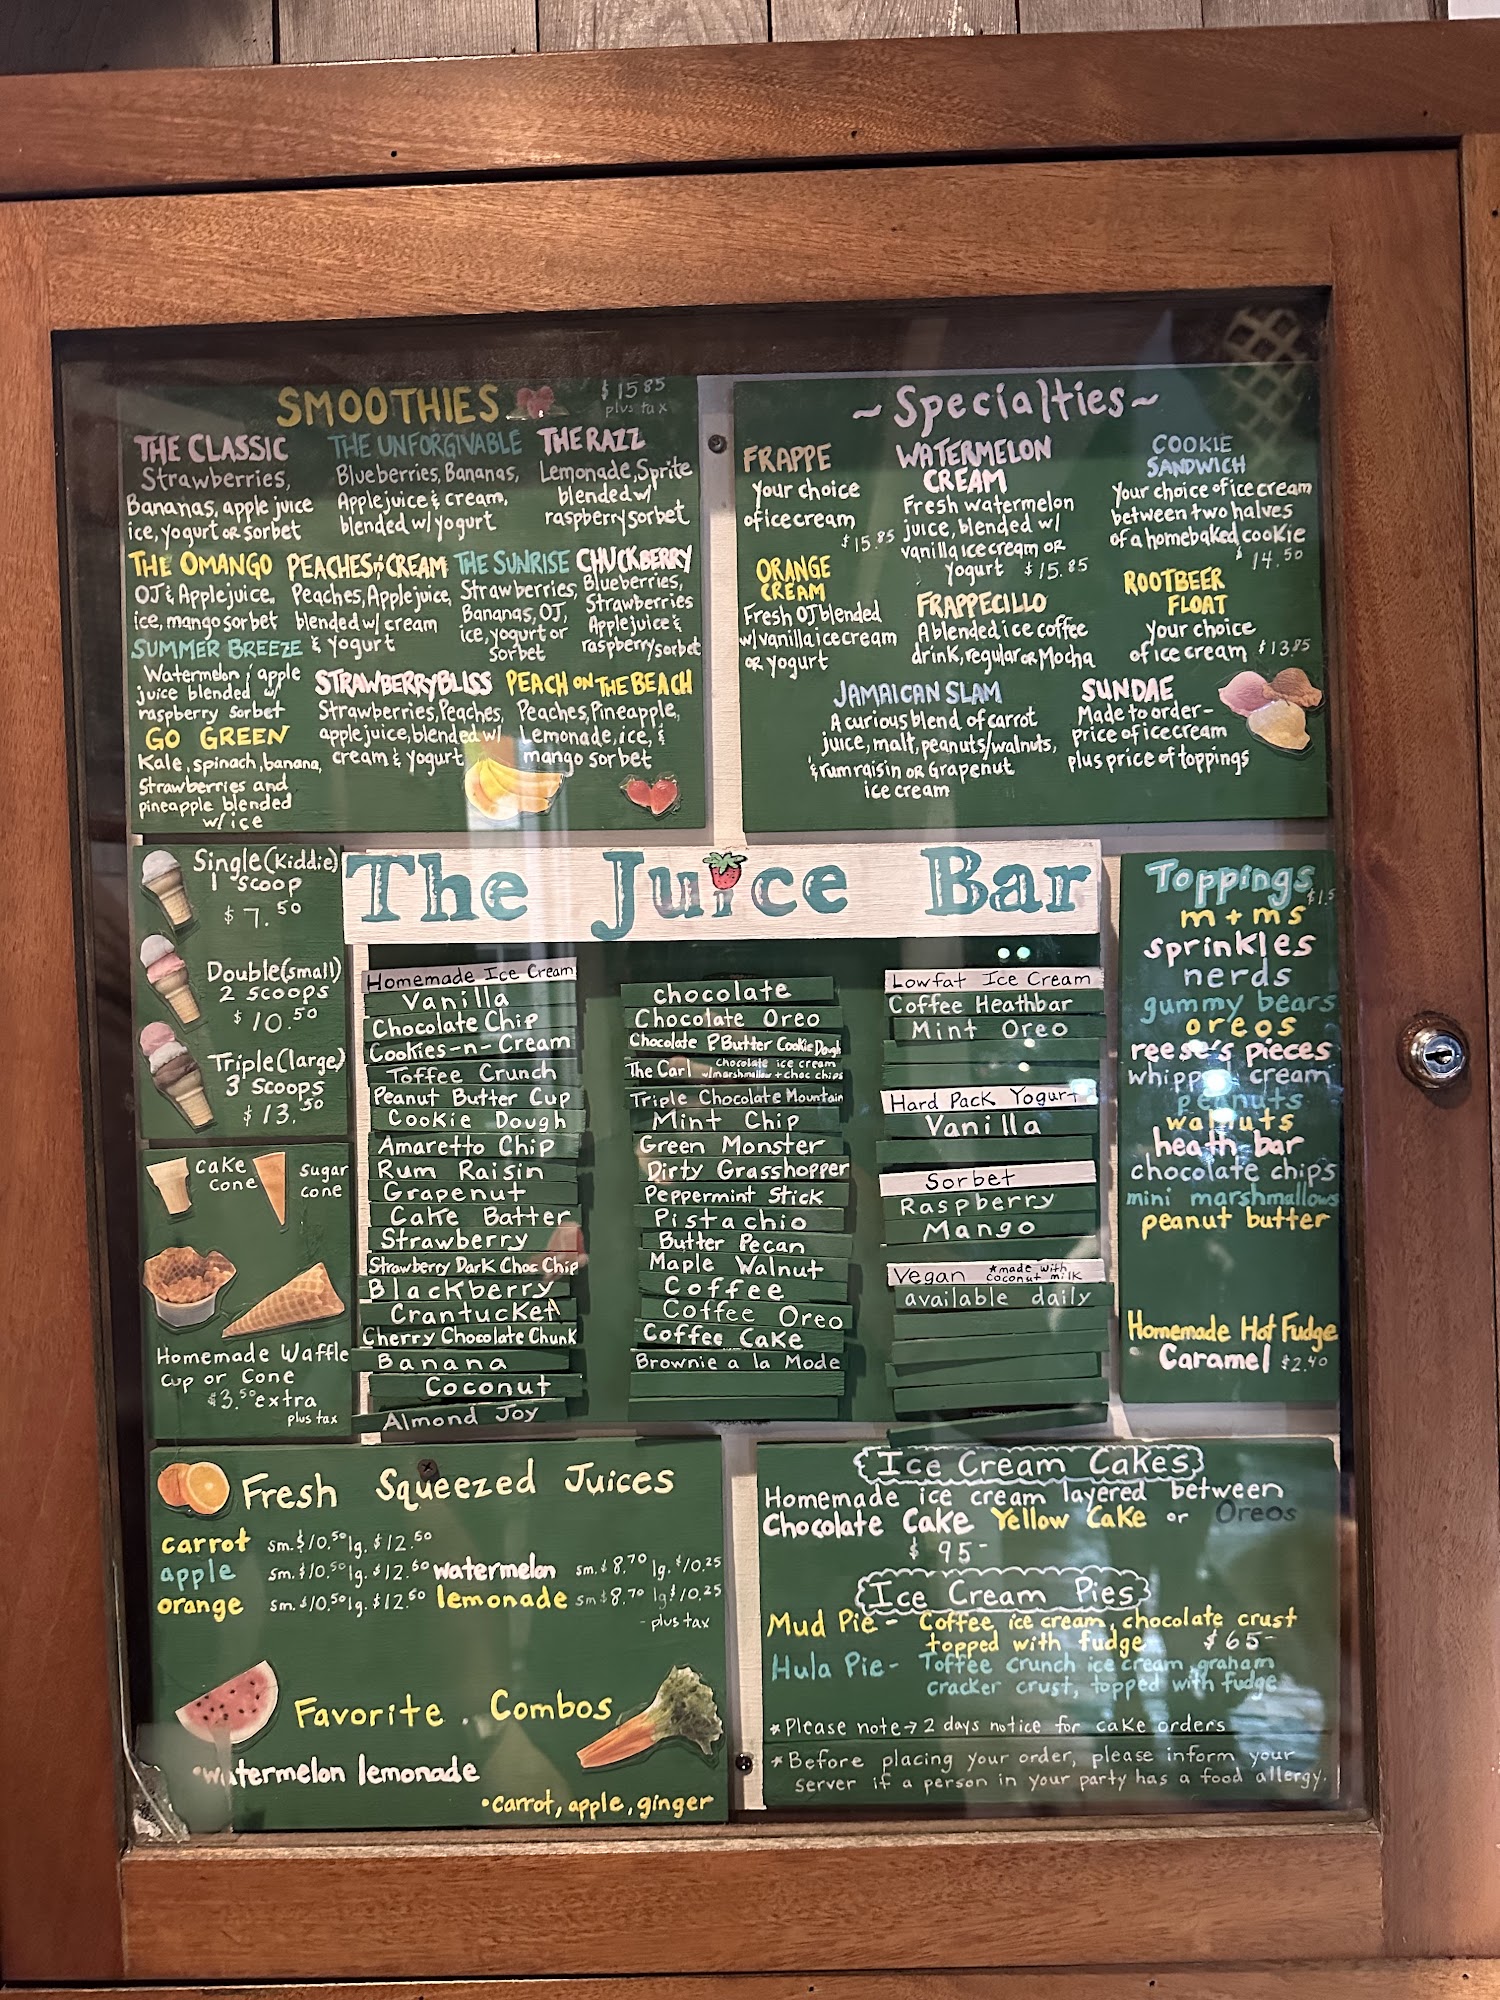 SMOOTHIES
$15.85
plus tax
THE CLASSIC
Strawberries,
Bananas, apple juice
ice, yogurt or sorbet
THE UNFORGIVABLE
Blueberries, Bananas,
Apple juice & cream,
blended w/ yogurt
THE RAZZ
Lemonade, Sprite
blended w/
raspberry sorbet
THE OMANGO
OJ & Apple juice,
ice, mango sorbet
PEACHES & CREAM
Peaches, Apple juice,
blended w/ cream
& yogurt
THE SUNRISE
Strawberries,
Bananas, OJ,
ice, yogurt or
sorbet
CHUCKBERRY
Blueberries,
Strawberries
Apple juice &
raspberry sorbet
SUMMER BREEZE
Watermelon, apple
juice blended w/
raspberry sorbet
STRAWBERRY BLISS
Strawberries, Peaches,
apple juice, blended w/
cream & yogurt
PEACH ON THE BEACH
Peaches, Pineapple,
Lemonade, ice, &
mango sorbet
GO GREEN
Kale, spinach, banana,
Strawberries and
pineapple blended
w/ ice
~Specialties~
FRAPPE
Your choice
of ice cream
$15.85
WATERMELON
CREAM
Fresh watermelon
juice, blended w/
vanilla ice cream or
yogurt $15.85
COOKIE
SANDWICH
Your choice of ice cream
between two halves
of a homebaked cookie
$14.50
ORANGE
CREAM
Fresh OJ blended
w/ vanilla ice cream
or yogurt
FRAPPECILLO
A blended ice coffee
drink, regular or Mocha
ROOTBEER
FLOAT
Your choice
of ice cream $13.85
JAMAICAN SLAM
A curious blend of carrot
juice, malt, peanuts/walnuts,
& rum raisin or Grapenut
ice cream
SUNDAE
Made to order-
price of ice cream
plus price of toppings
Single (Kiddie)
1 scoop
$7.50
Double (small)
2 scoops
$10.50
Triple (large)
3 scoops
$13.50
cake
cone
sugar
cone
Homemade Waffle
Cup or Cone
$3.50 extra
plus tax
The Juice Bar
Homemade Ice Cream
Vanilla
Chocolate Chip
Cookies-n-Cream
Toffee Crunch
Peanut Butter Cup
Cookie Dough
Amaretto Chip
Rum Raisin
Grapenut
Cake Batter
Strawberry
Strawberry Dark Choc Chip
Blackberry
Crantucket
Cherry Chocolate Chunk
Banana
Coconut
Almond Joy
chocolate
Chocolate Oreo
Chocolate P.Butter Cookie Dough
The Carl chocolate ice cream
w/marshmallow + choc chips
Triple Chocolate Mountain
Mint Chip
Green Monster
Dirty Grasshopper
Peppermint Stick
Pistachio
Butter Pecan
Maple Walnut
Coffee
Coffee Oreo
Coffee Cake
Brownie a la Mode
Lowfat Ice Cream
Coffee Heathbar
Mint Oreo
Hard Pack Yogurt
Vanilla
Sorbet
Raspberry
Mango
Vegan *made with
coconut milk
available daily
Toppings
m+ms
sprinkles
nerds
gummy bears
oreos
reese's pieces
whipped cream
peanuts
walnuts
heath bar
chocolate chips
mini marshmallows
peanut butter
Homemade Hot Fudge
Caramel $2.40
Fresh Squeezed Juices
carrot sm. $10.50 lg. $12.60
apple sm. $10.50 lg. $12.60
orange sm. $10.50 lg. $12.60
watermelon sm. $8.70 lg. $10.25
lemonade sm $8.70 lg $10.25
- plus tax
Favorite Combos
•watermelon lemonade
•carrot, apple, ginger
Ice Cream Cakes
Homemade ice cream layered between
Chocolate Cake Yellow Cake or Oreos
$95-
Ice Cream Pies
Mud Pie - Coffee ice cream, chocolate crust
topped with fudge $65-
Hula Pie - Toffee crunch ice cream, graham
cracker crust, topped with fudge
*Please note→2 days notice for cake orders
*Before placing your order, please inform your
server if a person in your party has a food allergy.